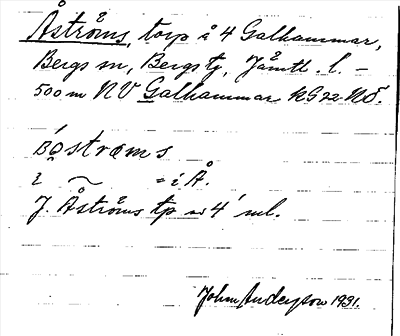 Åströms, torp å 4 Galhammar,
Bergs sn, Bergs tg, Jämtl. l. –
500 m NV Galhammar RG 22 NÖ.
i ~ = i Å.
J. Åströms tp
John Anderson 1931.